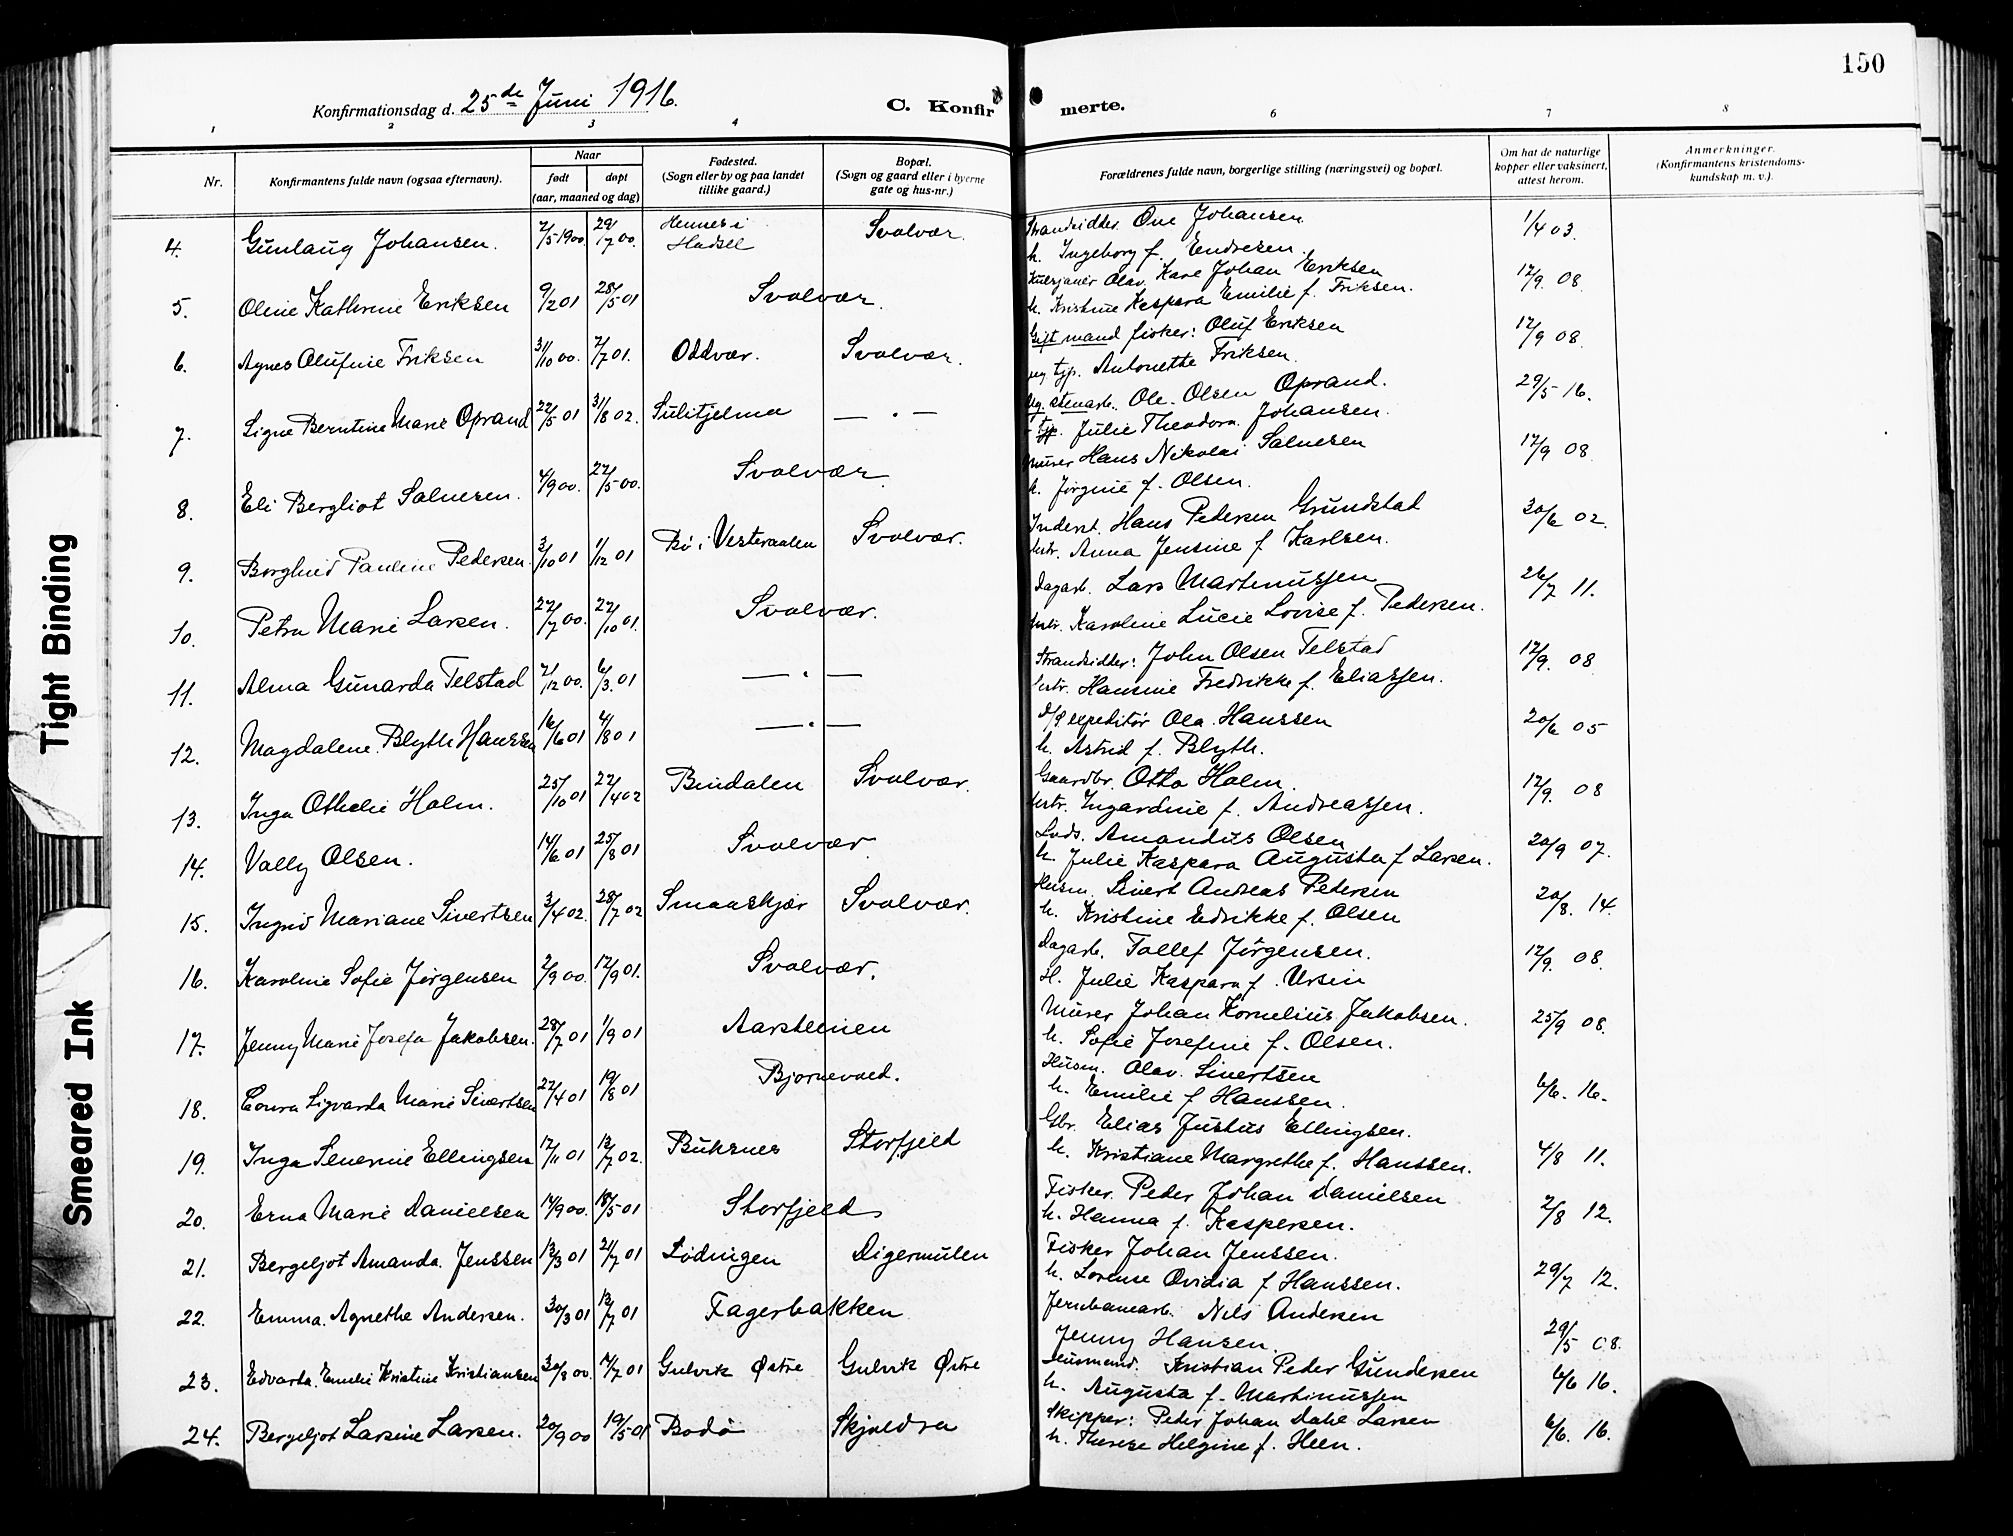 150
Konfirmationsdag d. 25de Juni 1916.
C. Konfirmerte.
1 2 3 4 6 7 8
Nr.
Konfirmantens fulde navn (ogsaa efternavn).
Naar
født døpt
(aar, maaned og dag)
Fødested.
(Sogn eller by og paa landet
tillike gaard.)
Bopæl.
(Sogn og gaard eller i byerne
gate og hus-nr.)
Forældrenes fulde navn, borgerlige stilling (næringsvei) og bopæl.
Om hat de naturlige
kopper eller vaksinert,
attest herom.
Anmerkninger.
(Konfirmantens kristendoms-
kundskap m. v.).
4. Gunlaug Johansen. 2/5 1900. 29/7 00. Hennes i Hadsel Svolvær. Strandsidder Ove Johansen 1/4 03.
h. Ingeborg f. Endresen.
5. Oline Kathrine Eriksen 9/2 01 28/5 01 Svolvær. Olav Karl Johan Eriksen 12/9. 08.
h. Kristine Kaspara Emilie f. Friksen.
6. Agnes Olufine Friksen 31/10 00. 7/7 01. Oddvær. Svolvær. Gift mand fisker: Oluf Eriksen 12/9 08.
ug. tjp. Antonette Friksen.
7. Signe Berntine Marie Oprand 22/5 01 31/8 02. Sulitjelma — „ — Ug. stenarb. Ole Olsen Oprand. 29/5 16.
tjp. Julie Theodora Johansen.
8. Eli Bergliot Salvesen. 4/9 00. 27/5 00. Svolvær. Murer Hans Nikolai Salvesen 12/9 08.
h. Jørgine f. Olsen.
9. Borghild Pauline Pedersen 3/10 01 1/12 01 Bø i Vesteraalen Svolvær. Inderst. Hans Pedersen Grundstad 20/6 02.
hstr. Anna Jensine f Karlsen.
10. Petra Marie Larsen. 27/7 00. 27/10 01. Svolvær. Dagarb. Lars Martinussen 26/7 11.
hstr. Karoline Lucie Lovise f. Pedersen.
11. Alma Gunarda Telstad 2/12 00. 6/3 01 — „ — Strandsidder: John Olsen Telstad 12/9. 08
hstr. Hansine Fredrikke f. Eliassen.
12. Magdalene Blyth Hanssen 16/6 01 4/8 01 — „ — D/s expeditør Ola Hanssen 20/6 05
h. Astrid f. Blyth.
13. Inga Othelie Holm. 25/10 01 27/4 02 Bindalen Svolvær. Gaardbr. Otto Holm. 12/9. 08
hstr. Ingardine f. Andreassen.
14. Vally Olsen. 14/6 01 25/8 01 Svolvær Lods. Amandus Olsen 20/9 07.
h. Julie Kaspara Augusta f Larsen.
15. Ingrid Mariane Sivertsen 3/4 02. 28/7 02 Smaaskjær Svolvær. Husm. Sivert Andreas Pedersen 20/8. 14.
h. Kristine Edrikke f. Olsen
16. Karoline Sofie Jørgensen 2/9 00. 12/9 01. Svolvær. Dagarb. Tollef Jørgensen. 12/9. 08.
H. Julie Kaspara f. Ursin
17. Jenny Marie Josefa Jakobsen. 28/7 01 1/9 01 Aarsteinen Murer Johan Kornelius Jakobsen. 25/9 08.
h. Sofie Josefine f. Olsen.
18. Conra Sigvarda Marie Sivertsen 27/4 01 19/8 01 Bjørnevold. Husm. Olav Sivertsen 6/6. 16.
h. Emilie f Hanssen.
19. Inga Severine Ellingsen 17/11 01 13/7 02. Buksnes Storfjeld Gbr. Elias Justus Ellingsen. 4/8 11.
h. Kristiane Margrethe f. Hanssen.
20. Erna Marie Danielsen 14/9 00. 18/5 01 Storfjeld Fisker. Peder Johan Danielsen 2/8 12.
h. Hanna f. Kaspersen.
21. Bergeljot Amanda Jenssen 13/3 01 21/7 01 Lødingen Digermulen Fisker Johan Jenssen. 29/7 12.
h. Lovense Ovidia f Hanssen.
22. Emma Agnethe Andersen. 30/3 01 13/7 01 Fagerbakken Jernbanearb. Nils Andersen 29/5 08.
Jenny Hansen.
23. Edvarda Emelie Kristine Kristiansen 30/8 00. 7/7 01 Gulvik Østre Gulvik Østre Husmand. Kristian Peder Gundersen 6/6 16.
h. Augusta f. Martinussen
24. Bergeljot Larsine Larsen. 20/9 00 19/5 01 Bodø Skjoldra Skipper: Peder Johan Dahl Larsen 6/6. 16.
h. Therese Helgine f. Heen.
Tight Binding
Smeared Ink